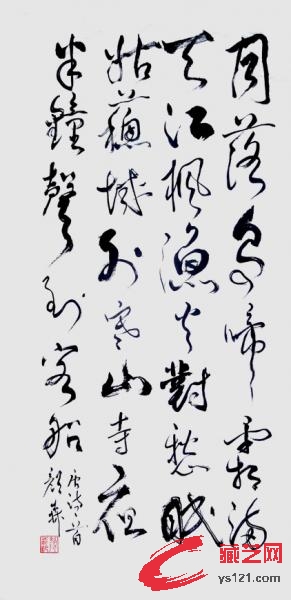 月落乌啼霜满
天江枫渔火對愁眠
姑蘇城外寒山寺夜
半鐘聲到客船
唐詩一首
藏艺网
ys121.com